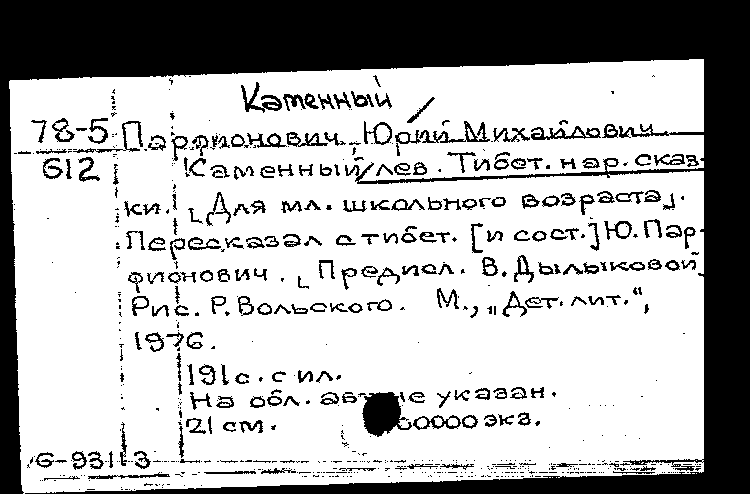 Каменный
78-5 Парфионович, Юрий Михайлович
612 Каменный лев. Тибет. нар. сказ-
ки. [Для мл. школьного возраста].
Пересказал с тибет. [и сост.] Ю. Пар-
фионович. [Предисл. В. Дылыковой
Рис. Р. Вольского. М., „Дет. лит.",
1976.
191 с. с ил.
На обл. авт. не указан.
21 см. 00000 экз.